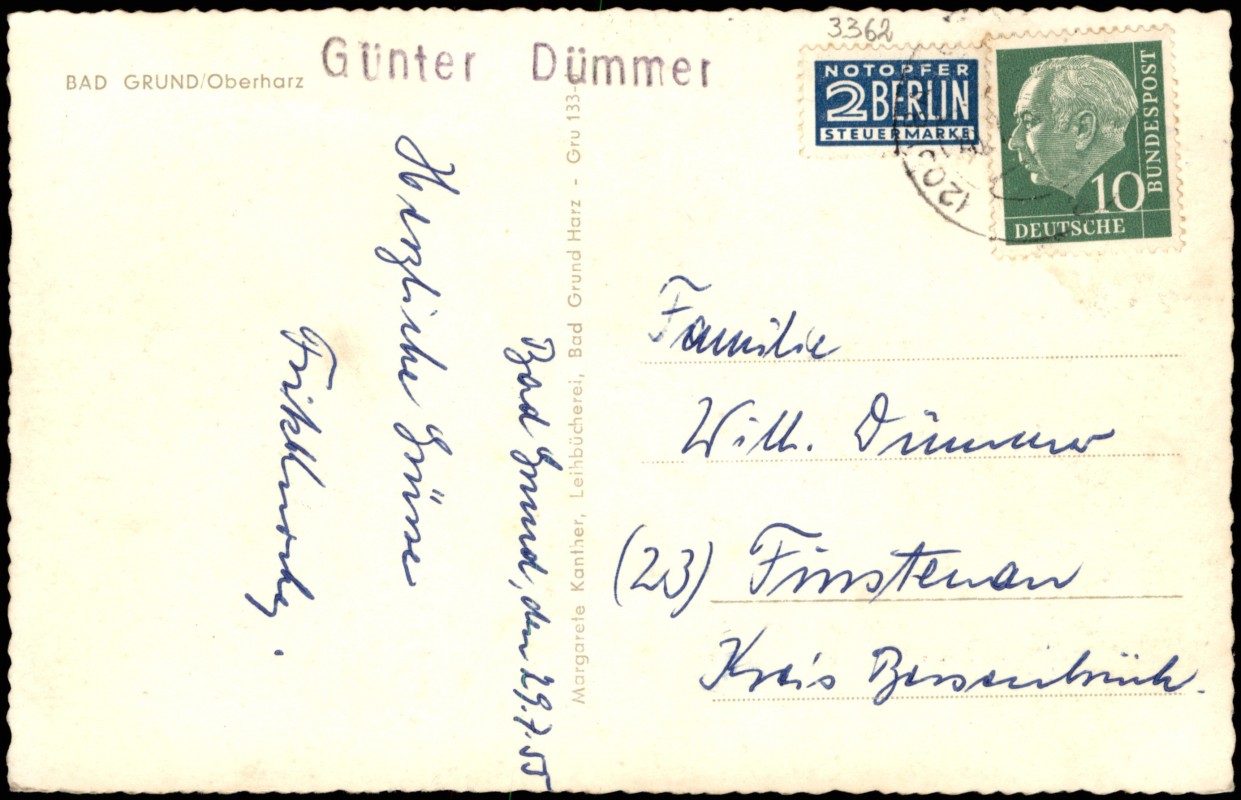 BAD GRUND/Oberharz
Günter Dümmer
3362
NOTOPFER
2 BERLIN
STEUERMARKE
(20
10
DEUTSCHE
BUNDESPOST
Bad Grund, den 29.7.55
Herzliche Grüsse
Margarete Kanther, Leihbücherei, Bad Grund Harz - Gru 133-
Familie
Willh. Dümmer
(23) Fürstenau
Kreis Bersenbrück.